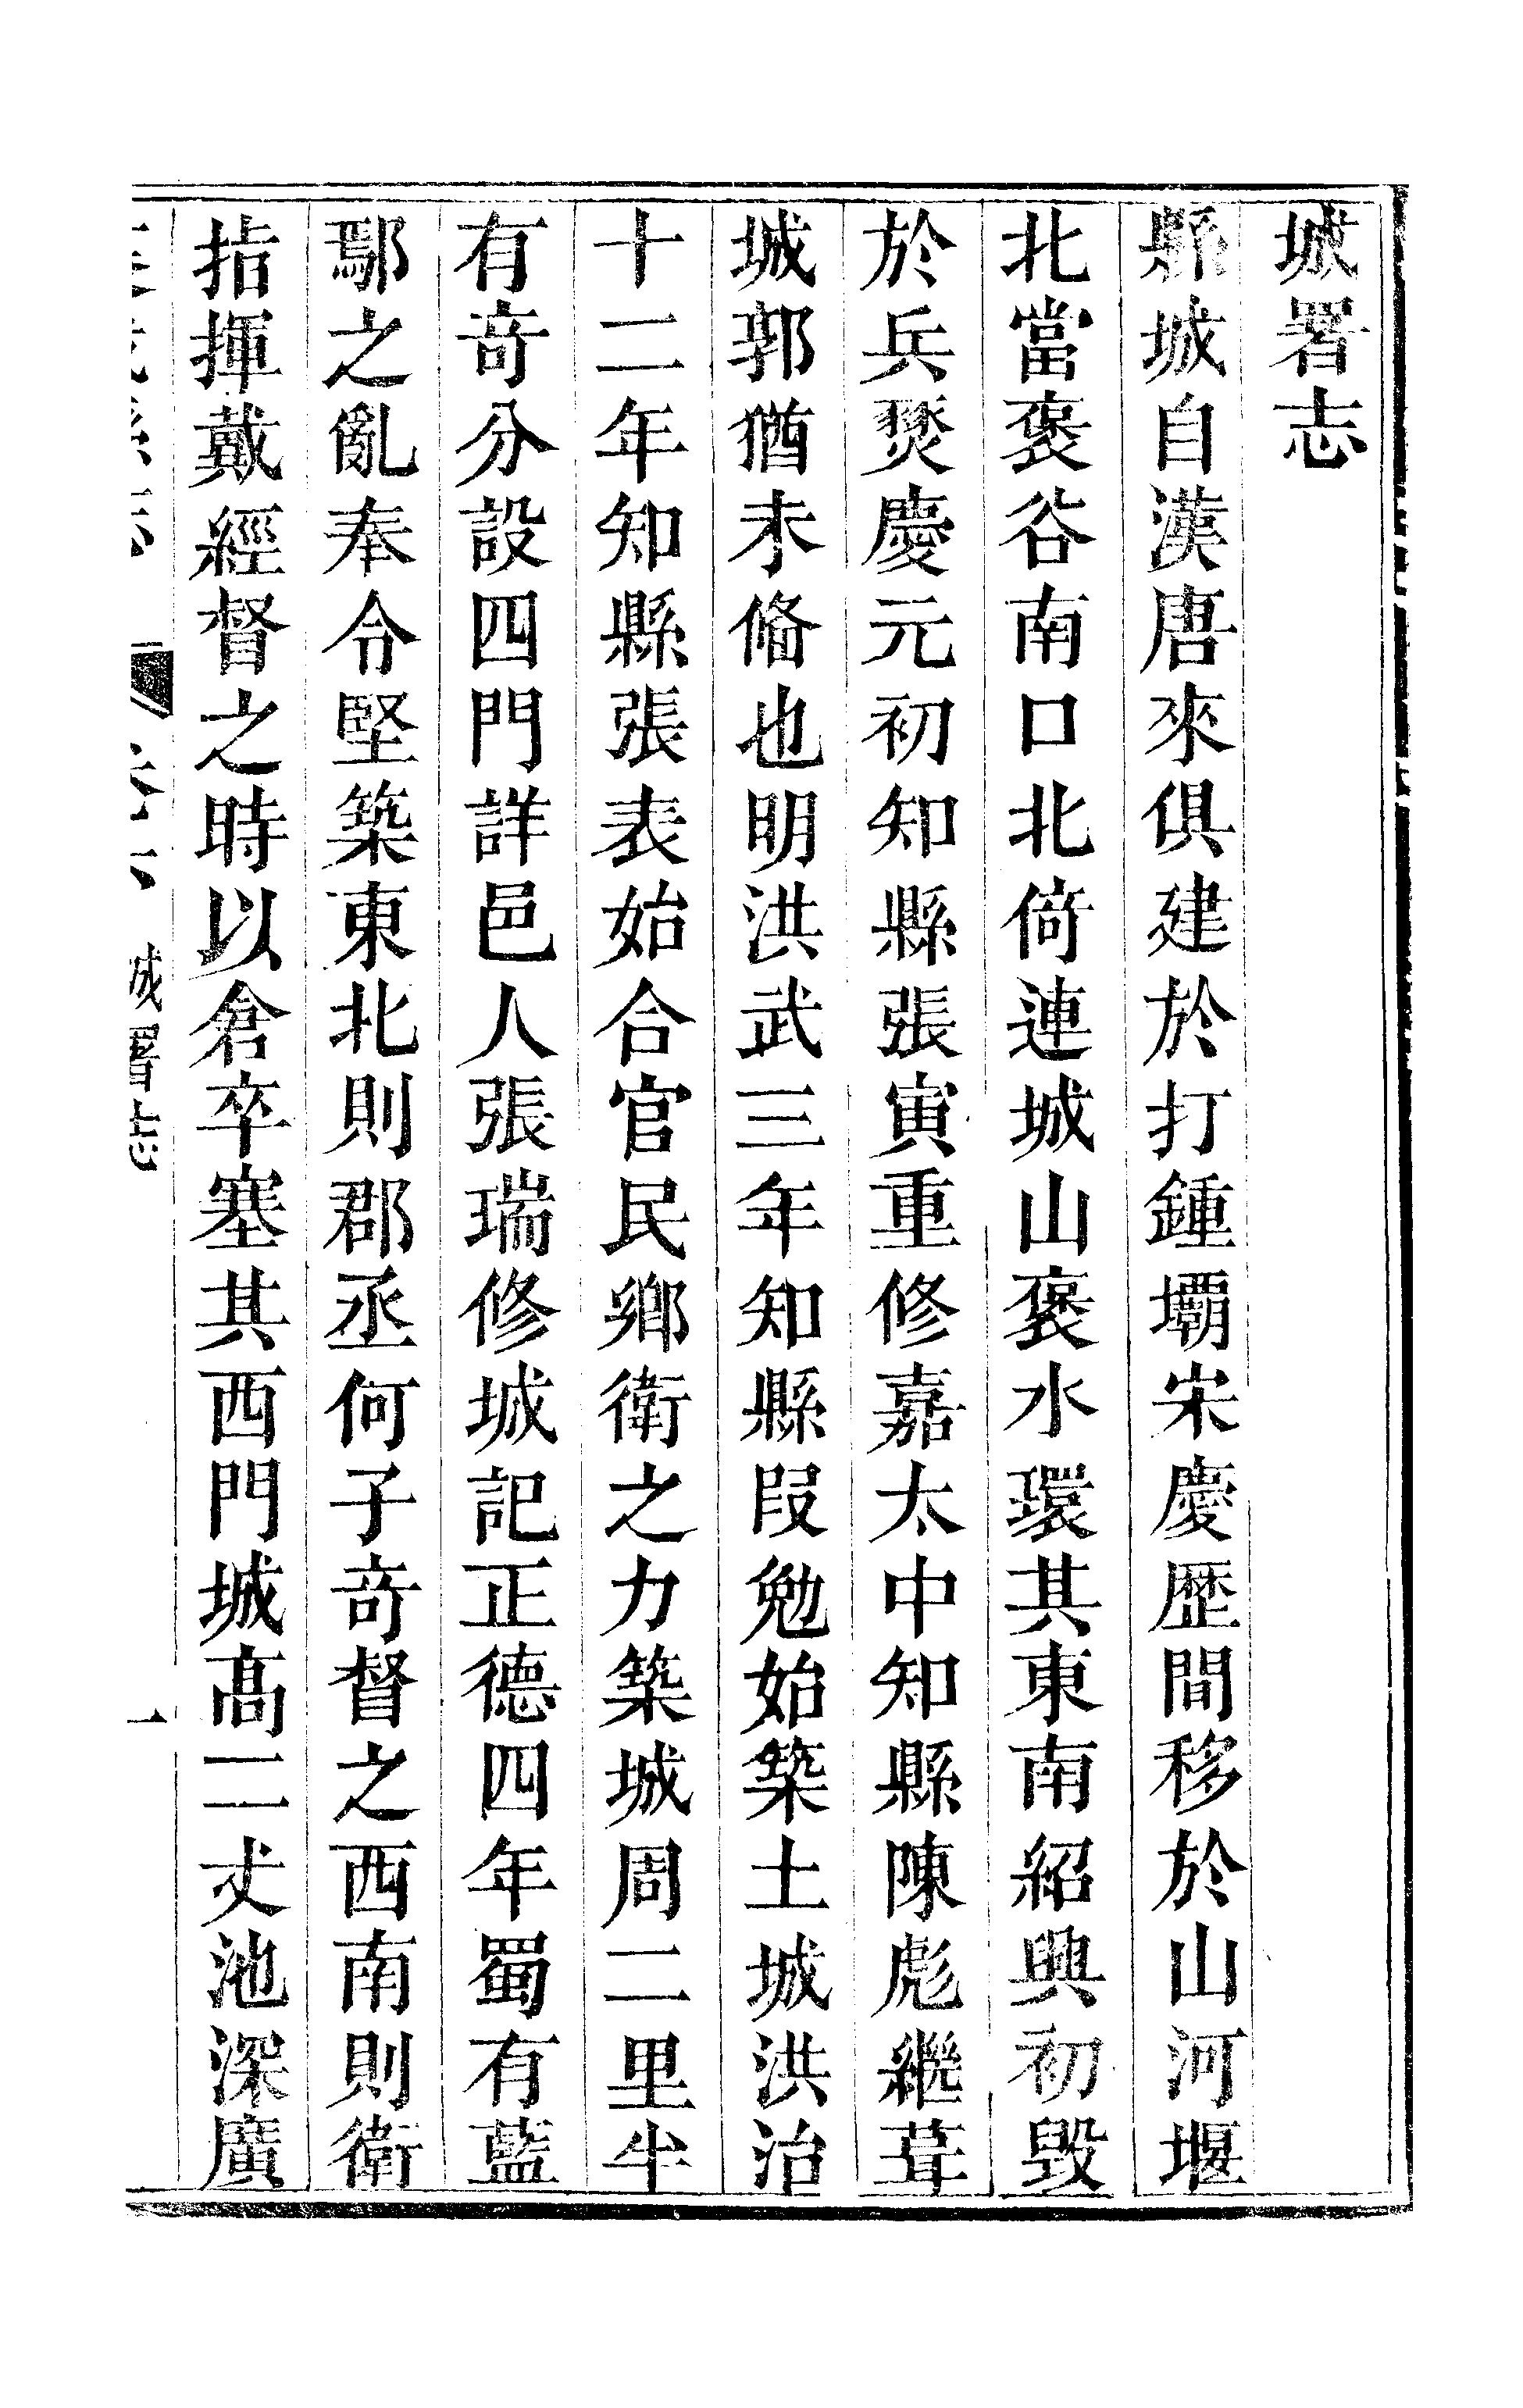 城署志
縣城自漢唐來俱建於打鍾壩宋慶歷間移於山河堰
北當褒谷南口北倚連城山褒水環其東南紹興初毀
於兵燹慶元初知縣張寅重修嘉太中知縣陳彪繼葺
城郭猶未脩也明洪武三年知縣段勉始築土城洪治
十二年知縣張表始合官民鄉衛之力築城周二里半
有竒分設四門詳邑人張瑞修城記正德四年蜀有藍
鄢之亂奉令堅築東北則郡丞何子竒督之西南則衛
指揮戴經督之時以倉卒塞其西門城高二丈池深廣
卷六 城署志 一